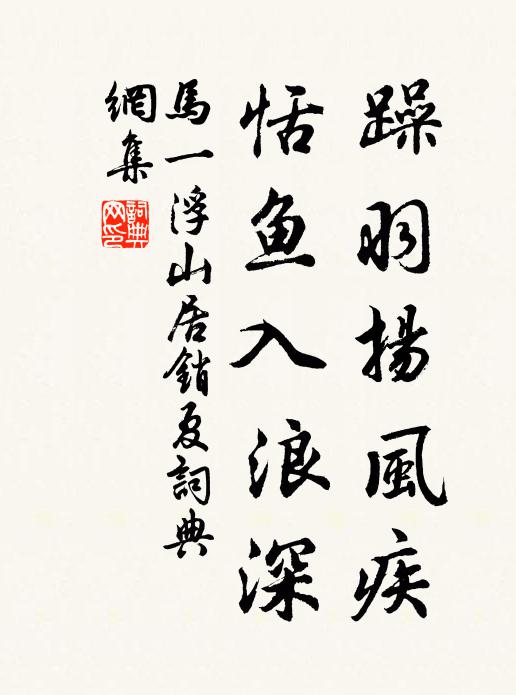 躁羽揚風疾
恬鱼入浪深
馬一浮山居銷夏詞典
網集
詞典網印